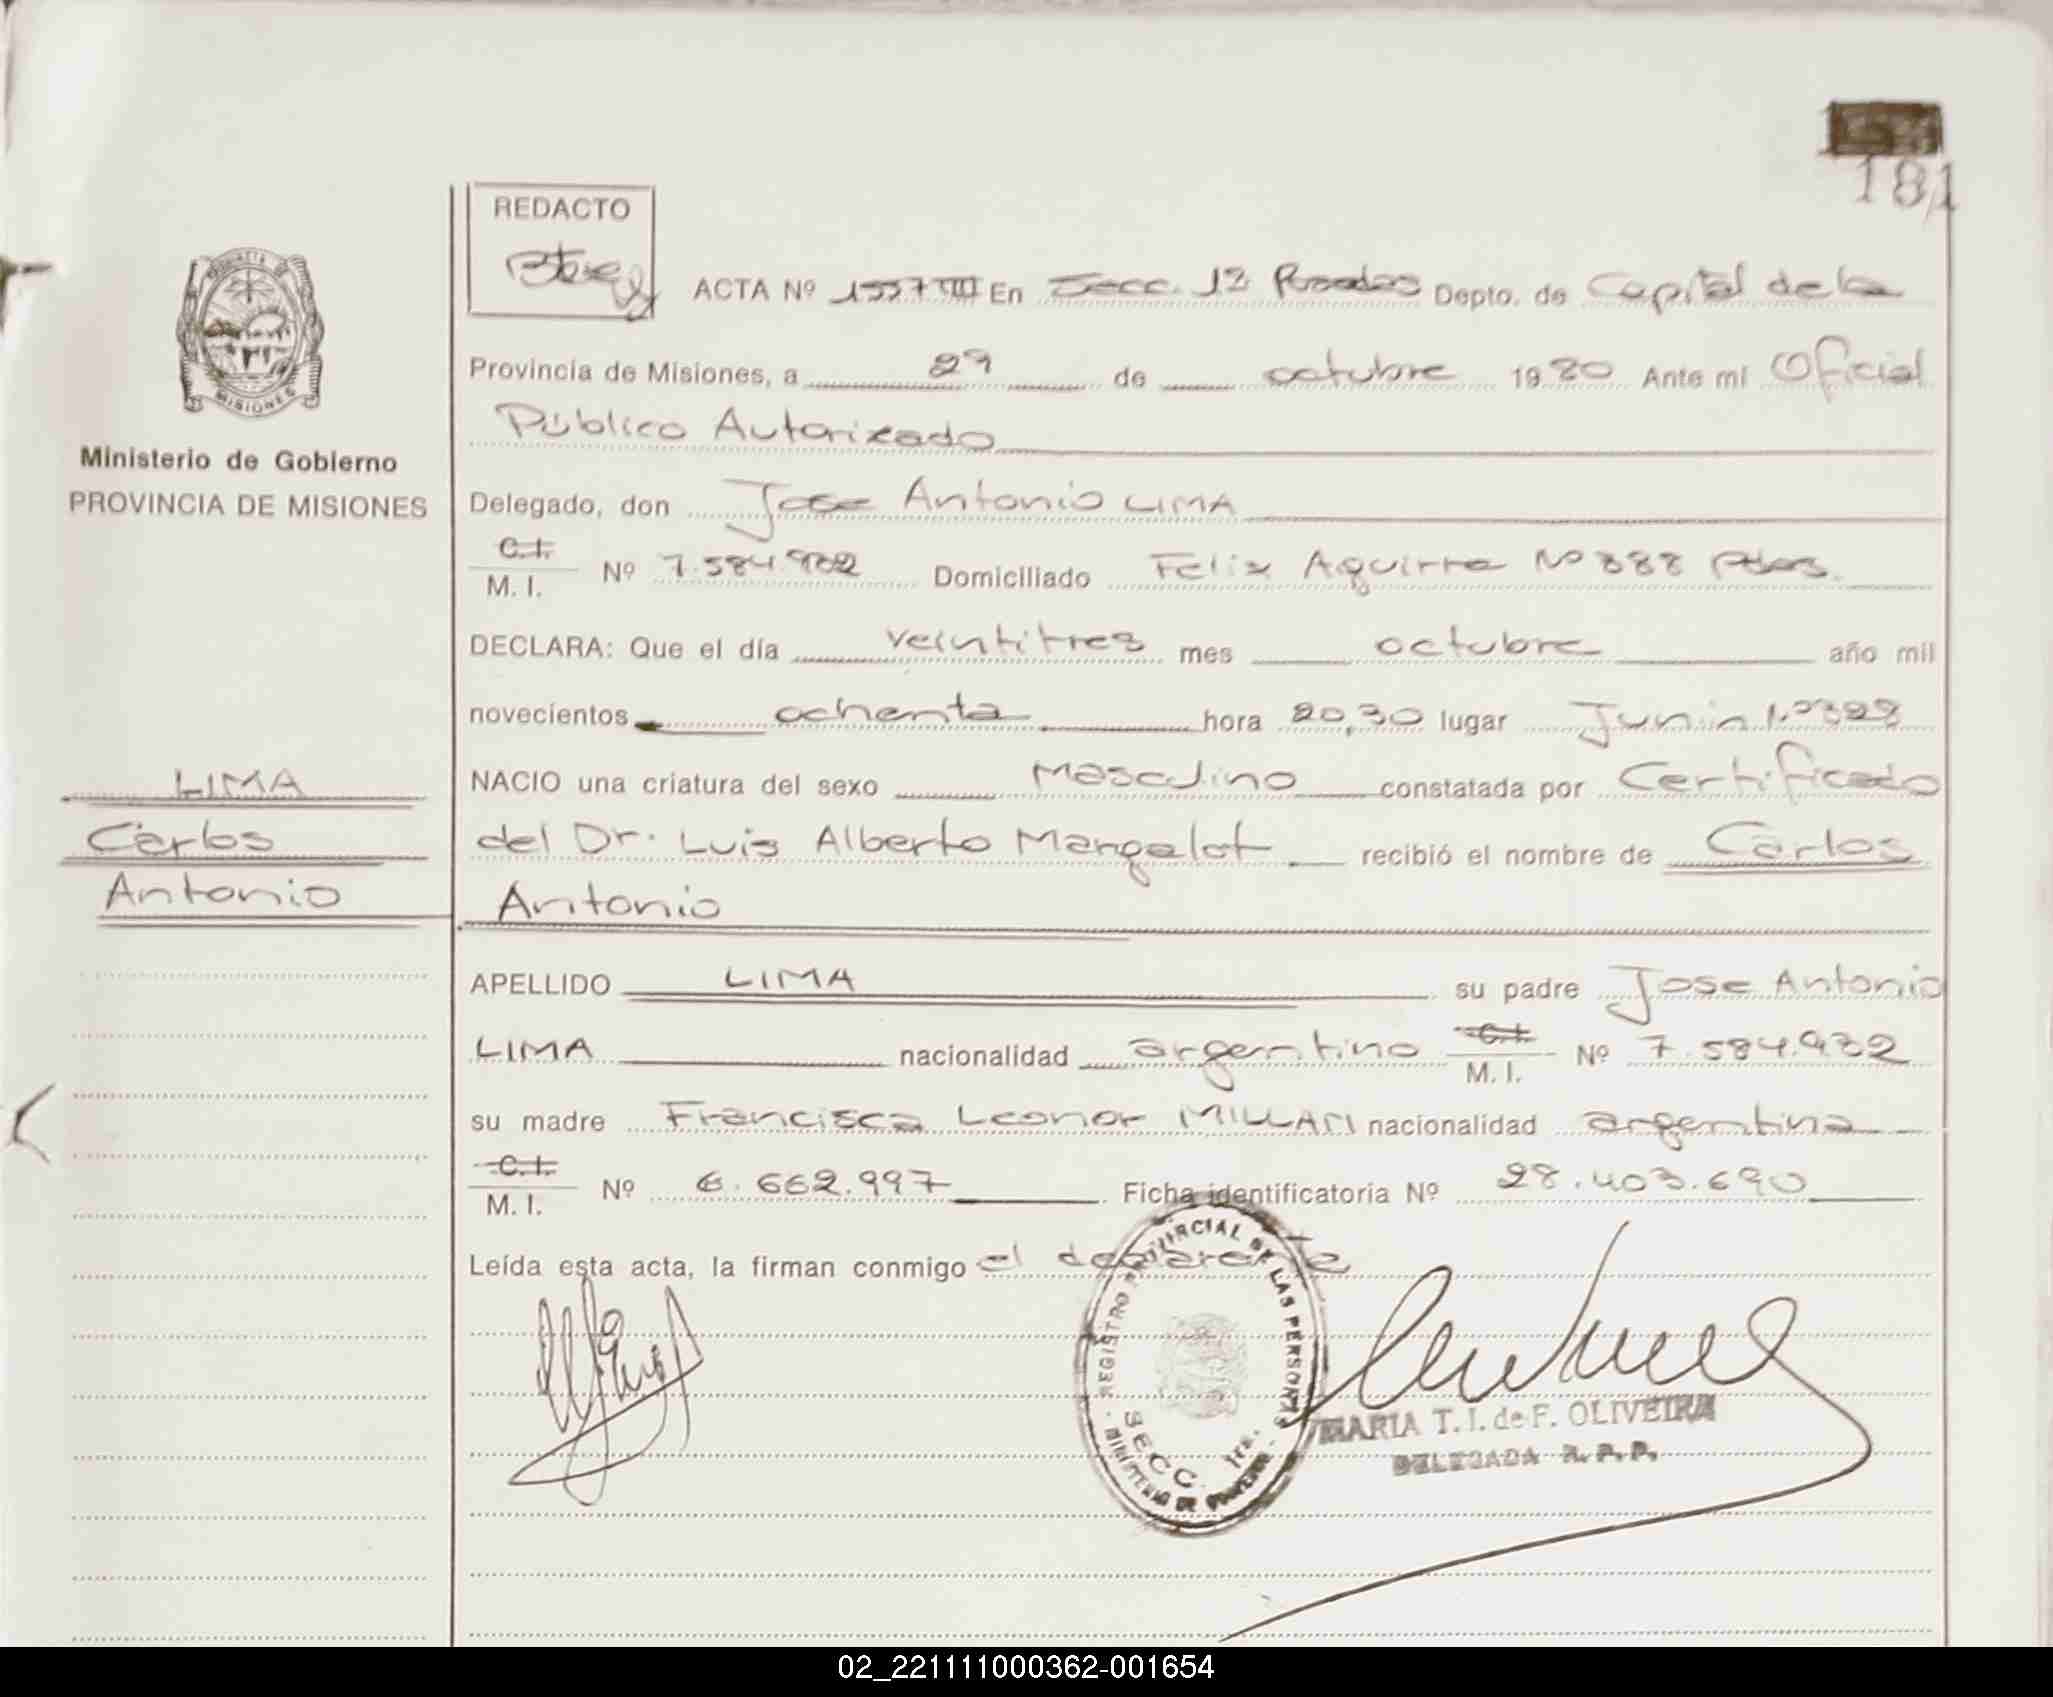 181
REDACTO
ACTA Nº 1557 III En Secc. 1ª Posadas Depto. de Capital de la
MISIONES
Provincia de Misiones, a 29 de octubre 1980 Ante mí Oficial
Publico Autorizado
Ministerio de Gobierno
PROVINCIA DE MISIONES
Delegado, don Jose Antonio LIMA
C.I.
M. I. Nº 7.584.932 Domiciliado Felix Aguirre Nº 388 Pdas.
DECLARA: Que el día veintitres mes octubre año mil
novecientos ochenta hora 20,30 lugar Junin
NACIO una criatura del sexo Masculino constatada por Certificado
del Dr. Luis Alberto Mangalot recibió el nombre de Carlos
Antonio
LIMA
Carlos
Antonio
APELLIDO LIMA su padre Jose Antonio
LIMA nacionalidad argentino C.I.
M. I. Nº 7.584.932
su madre Francisca Leonor MILLAN nacionalidad argentina
C.I.
M. I. Nº 6.662.997 Ficha identificatoria Nº 28.403.690
Leída esta acta, la firman conmigo el declarante
REGISTRO PROVINCIAL DE LAS PERSONAS
SECC. 1ra.
MINISTERIO DE GOBIERNO
MARIA T. I. de F. OLIVEIRA
DELEGADA R. P. P.
02_221111000362-001654